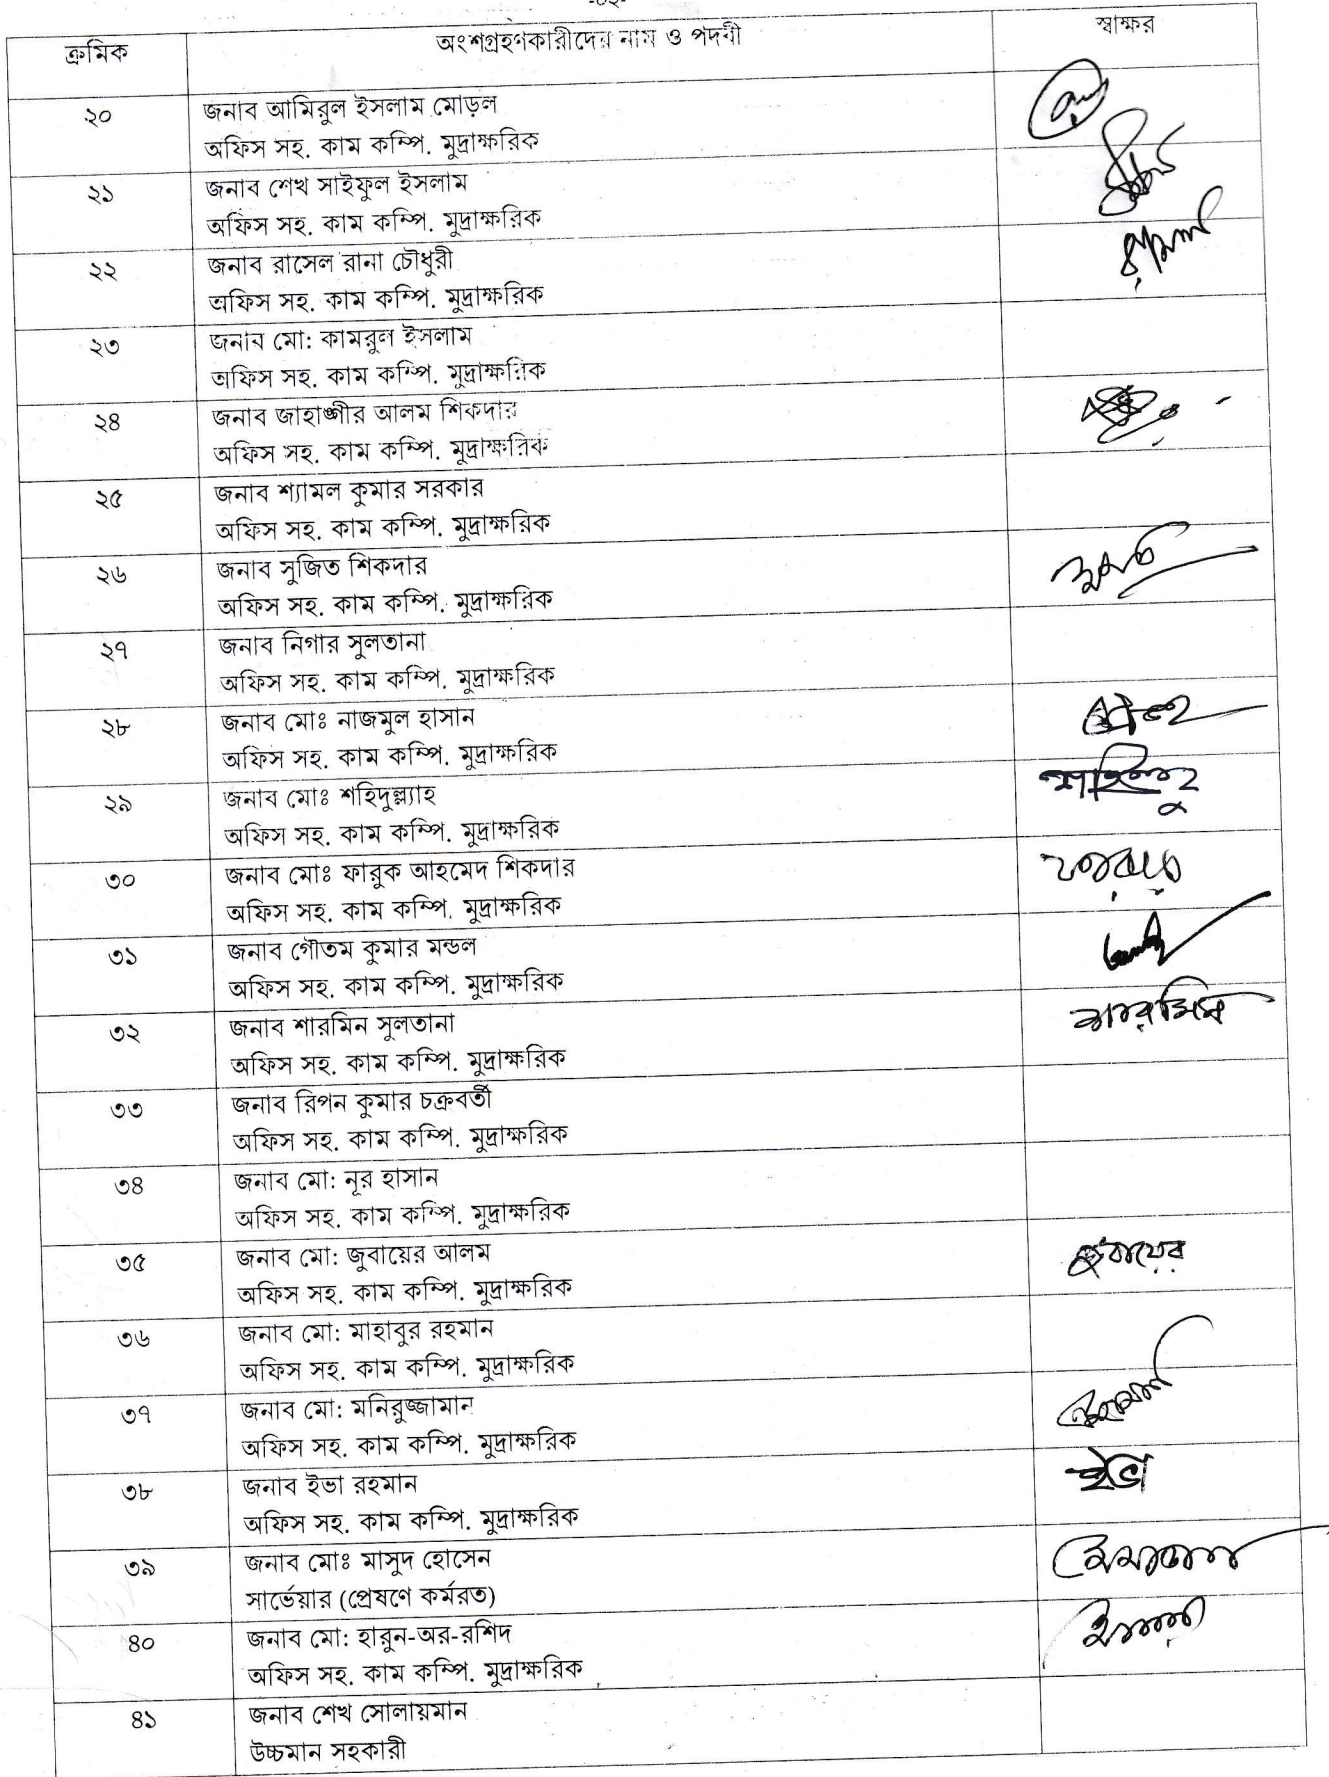 -০২-
ক্রমিক অংশগ্রহণকারীদের নাম ও পদবী স্বাক্ষর
২০ জনাব আমিরুল ইসলাম মোড়ল
অফিস সহ. কাম কম্পি. মুদ্রাক্ষরিক
২১ জনাব শেখ সাইফুল ইসলাম
অফিস সহ. কাম কম্পি. মুদ্রাক্ষরিক
২২ জনাব রাসেল রানা চৌধুরী
অফিস সহ. কাম কম্পি. মুদ্রাক্ষরিক
২৩ জনাব মো: কামরুল ইসলাম
অফিস সহ. কাম কম্পি. মুদ্রাক্ষরিক
২৪ জনাব জাহাঙ্গীর আলম শিকদার
অফিস সহ. কাম কম্পি. মুদ্রাক্ষরিক
২৫ জনাব শ্যামল কুমার সরকার
অফিস সহ. কাম কম্পি. মুদ্রাক্ষরিক
২৬ জনাব সুজিত শিকদার
অফিস সহ. কাম কম্পি. মুদ্রাক্ষরিক
২৭ জনাব নিগার সুলতানা
অফিস সহ. কাম কম্পি. মুদ্রাক্ষরিক
২৮ জনাব মোঃ নাজমুল হাসান
অফিস সহ. কাম কম্পি. মুদ্রাক্ষরিক
২৯ জনাব মোঃ শহিদুল্ল্যাহ
অফিস সহ. কাম কম্পি. মুদ্রাক্ষরিক
৩০ জনাব মোঃ ফারুক আহমেদ শিকদার
অফিস সহ. কাম কম্পি. মুদ্রাক্ষরিক
৩১ জনাব গৌতম কুমার মন্ডল
অফিস সহ. কাম কম্পি. মুদ্রাক্ষরিক
৩২ জনাব শারমিন সুলতানা শারমিন
অফিস সহ. কাম কম্পি. মুদ্রাক্ষরিক
৩৩ জনাব রিপন কুমার চক্রবর্তী
অফিস সহ. কাম কম্পি. মুদ্রাক্ষরিক
৩৪ জনাব মো: নূর হাসান
অফিস সহ. কাম কম্পি. মুদ্রাক্ষরিক
৩৫ জনাব মো: জুবায়ের আলম জুবায়ের
অফিস সহ. কাম কম্পি. মুদ্রাক্ষরিক
৩৬ জনাব মো: মাহাবুর রহমান
অফিস সহ. কাম কম্পি. মুদ্রাক্ষরিক
৩৭ জনাব মো: মনিরুজ্জামান
অফিস সহ. কাম কম্পি. মুদ্রাক্ষরিক
৩৮ জনাব ইভা রহমান ইভা
অফিস সহ. কাম কম্পি. মুদ্রাক্ষরিক
৩৯ জনাব মোঃ মাসুদ হোসেন
সার্ভেয়ার (প্রেষণে কর্মরত)
৪০ জনাব মো: হারুন-অর-রশিদ
অফিস সহ. কাম কম্পি. মুদ্রাক্ষরিক
৪১ জনাব শেখ সোলায়মান
উচ্চমান সহকারী